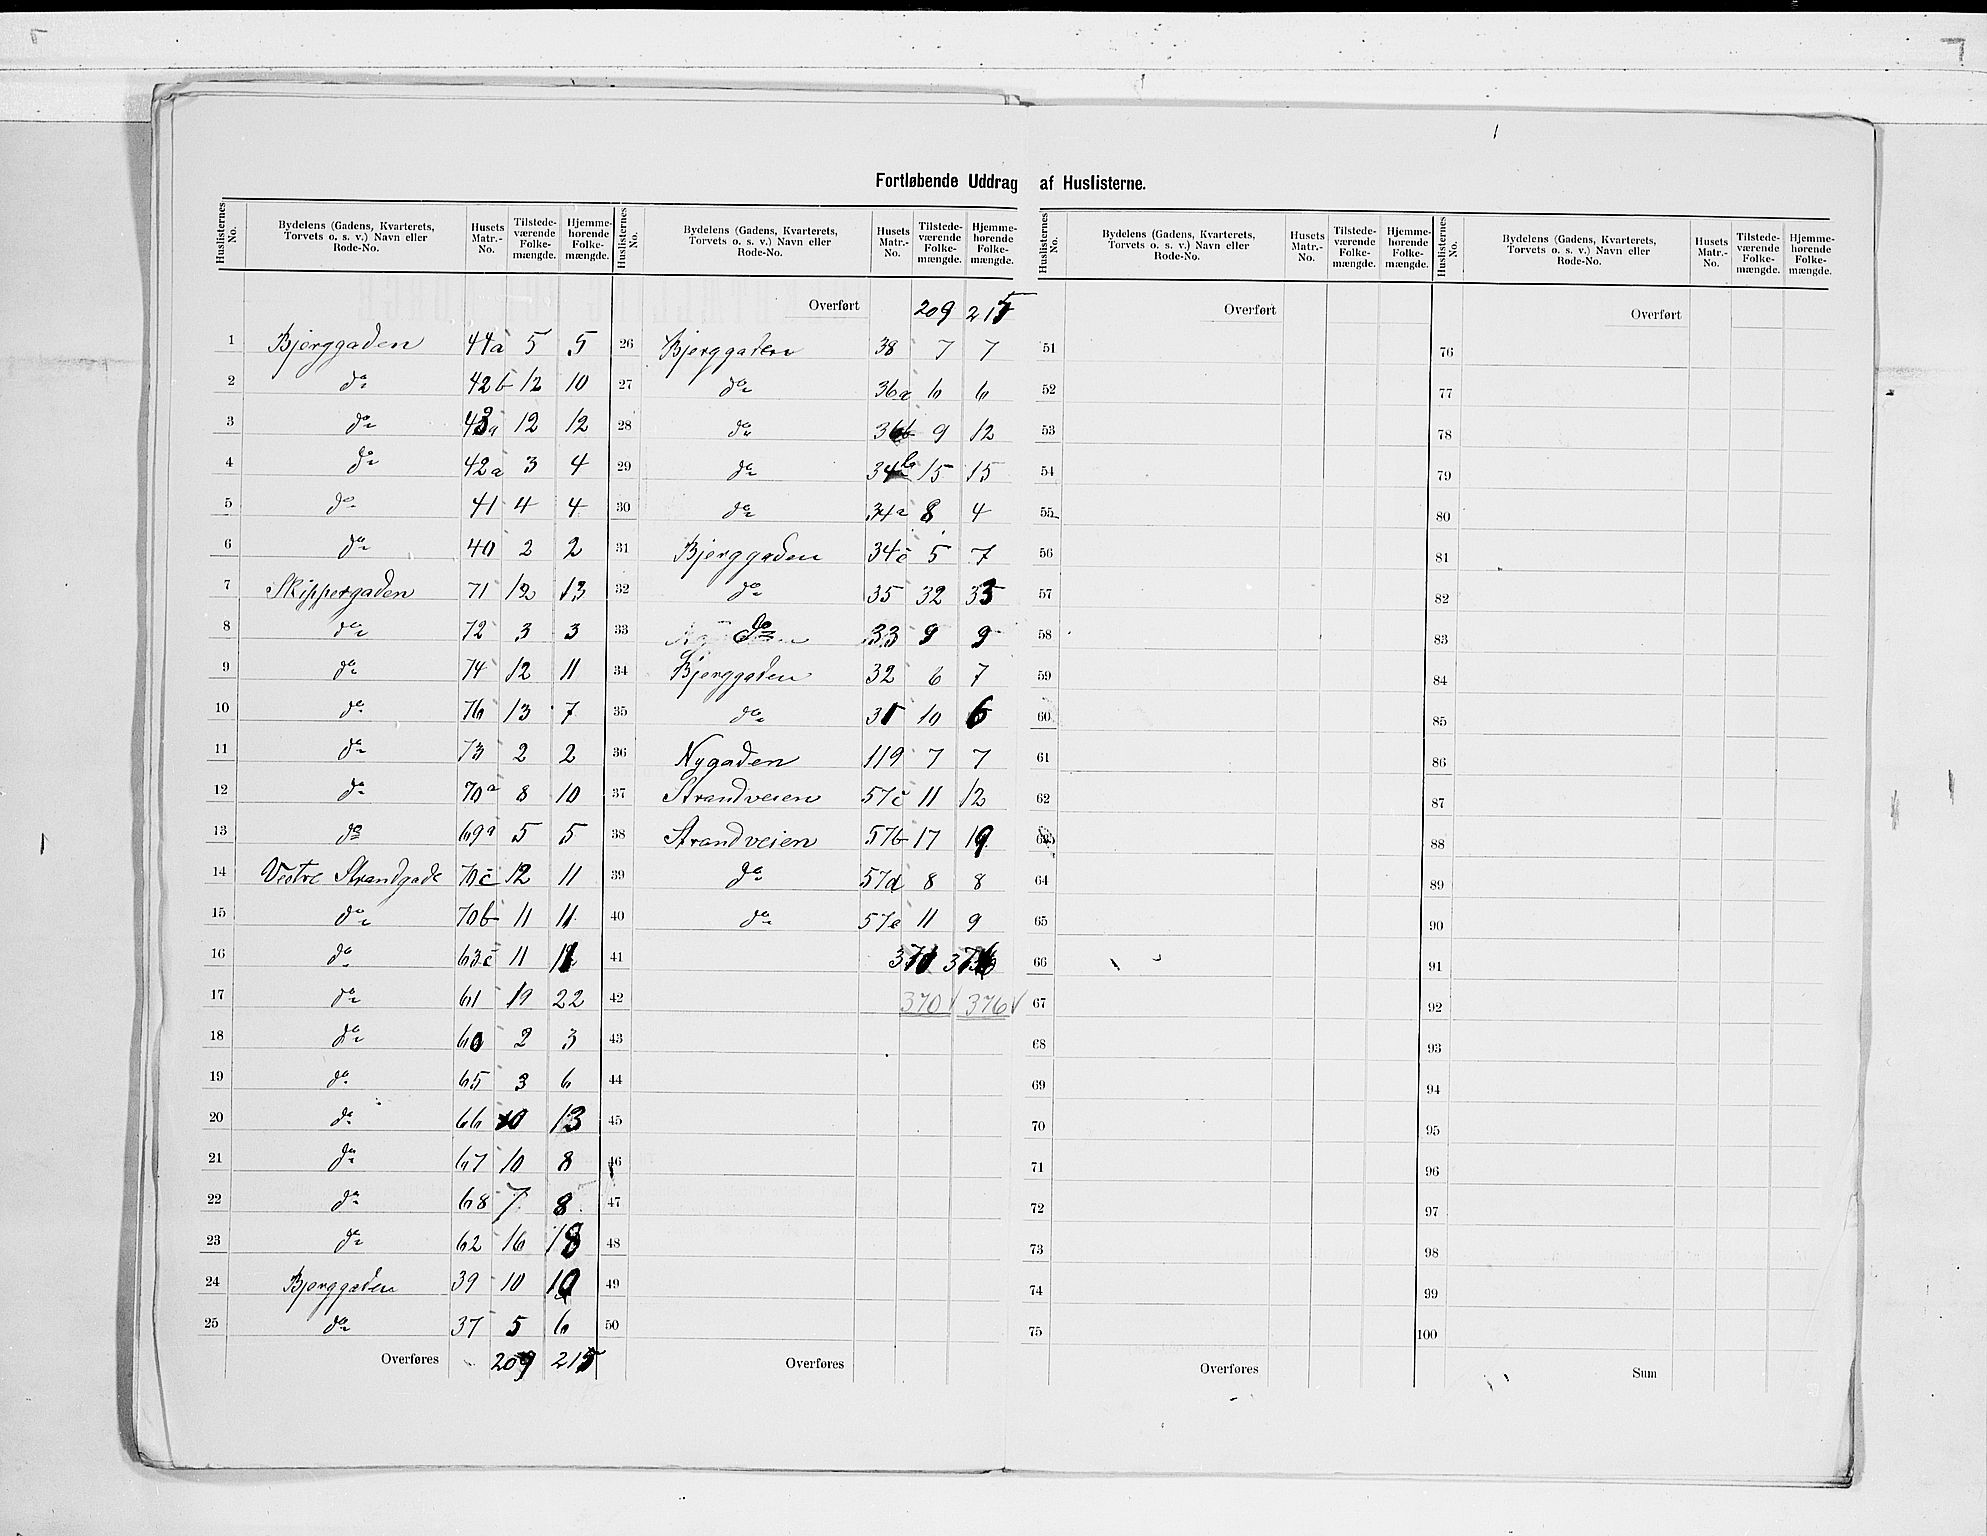 Fortløbende Uddrag af Huslisterne.
Huslisternes No. | Bydelens (Gadens, Kvarterets, Torvets o. s. v.) Navn eller Rode-No. | Husets Matr.-No. | Tilstede-værende Folke-mængde. | Hjemme-hørende Folke-mængde.
1 Bjerggaden 44a 5 5
2 do 42b 12 10
3 do 43a 12 12
4 do 42a 3 4
5 do 41 4 4
6 do 40 2 2
7 Skippergaden 71 12 13
8 do 72 3 3
9 do 74 12 11
10 do 76 13 7
11 do 73 2 2
12 do 70a 8 10
13 do 69a 5 5
14 Vestre Strandgade 70c 12 11
15 do 70b 11 11
16 do 63c 11
17 do 61 19 22
18 do 60 2 3
19 do 65 3 6
20 do 66 10 13
21 do 67 10 8
22 do 68 7 8
23 do 62 16 18
24 Bjerggaden 39 10 10
25 do 37 5 6
Overføres 209 215
Huslisternes No. | Bydelens (Gadens, Kvarterets, Torvets o. s. v.) Navn eller Rode-No. | Husets Matr.-No. | Tilstede-værende Folke-mængde. | Hjemme-hørende Folke-mængde.
Overført 209 215
26 Bjerggaden 38 7 7
27 do 36a 6 6
28 do 36b 9 12
29 do 34b 15 15
30 do 34a 8 4
31 Bjerggaden 34c 5 7
32 do 35 32 33
33 do 33 9 9
34 Bjerggaden 32 6 7
35 do 31 10 6
36 Nygaden 119 7 7
37 Strandveien 57c 11 12
38 Strandveien 57b 17 19
39 do 57d 8 8
40 do 57e 11 9
41
42 370 376
43
44
45
46
47
48
49
50
Overføres
Huslisternes No. | Bydelens (Gadens, Kvarterets, Torvets o. s. v.) Navn eller Rode-No. | Husets Matr.-No. | Tilstede-værende Folke-mængde. | Hjemme-hørende Folke-mængde.
Overført
51
52
53
54
55
56
57
58
59
60
61
62
63
64
65
66
67
68
69
70
71
72
73
74
75
Overføres
Huslisternes No. | Bydelens (Gadens, Kvarterets, Torvets o. s. v.) Navn eller Rode-No. | Husets Matr.-No. | Tilstede-værende Folke-mængde. | Hjemme-hørende Folke-mængde.
Overført
76
77
78
79
80
81
82
83
84
85
86
87
88
89
90
91
92
93
94
95
96
97
98
99
100
Sum